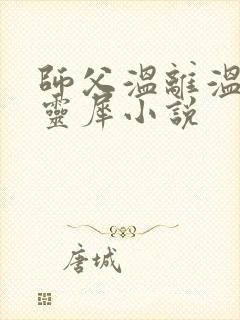 師父溫離溫
靈犀小說
唐城